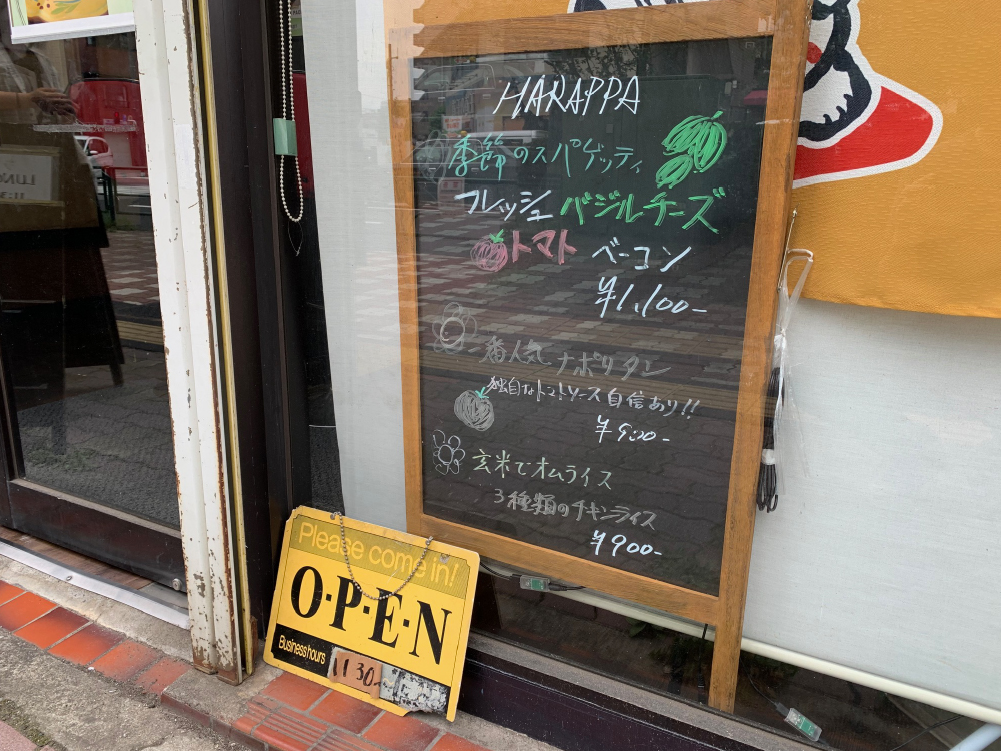 HARAPPA
季節のスパゲッティ
フレッシュ バジルチーズ
トマト ベーコン
¥1,100-
一番人気 ナポリタン
独自なトマトソース 自信あり!!
¥900-
玄米でオムライス
3種類のチキンライス
¥900-
Please come in!
O·P·E·N
Business hours
11 30~